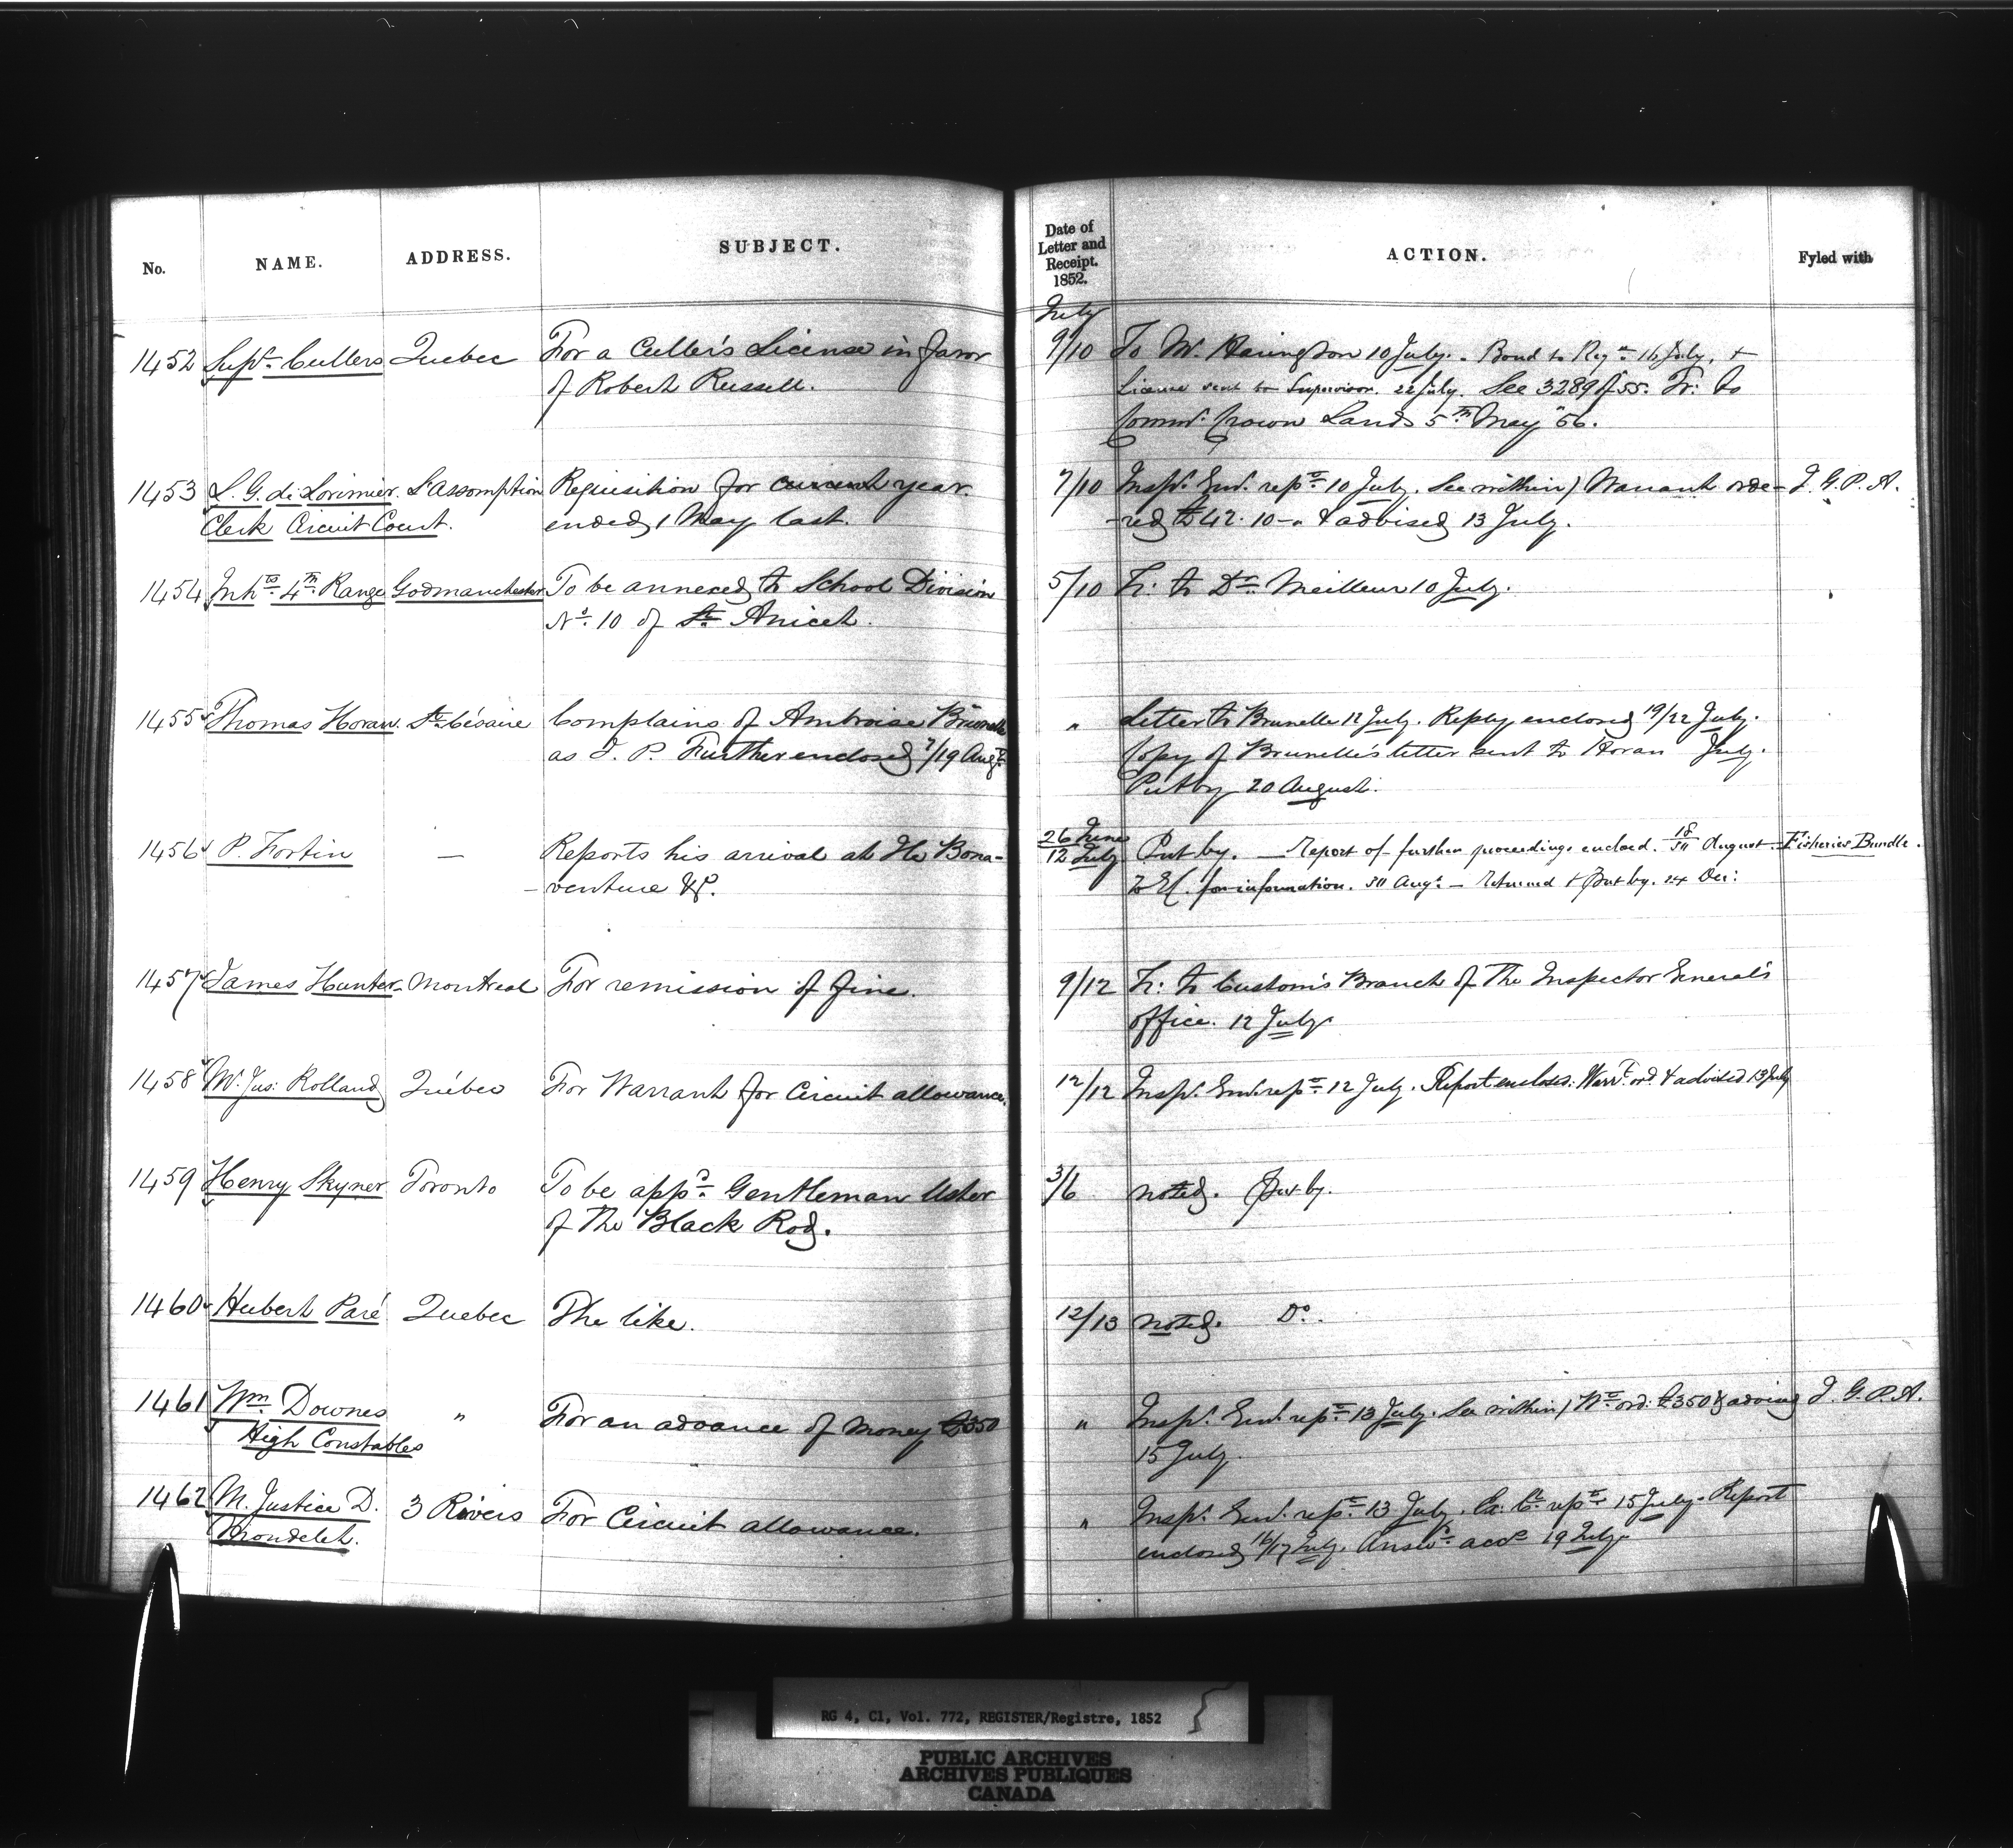 No. NAME. ADDRESS. SUBJECT. Date of Letter and Receipt. 1852. ACTION. Fyled with
July
1452 Supr. Cullers Quebec For a Culler's License in favor 9/10 To W. Harington 10 July. - Bond to Regr. 16 July. +
of Robert Russell. License sent to Supervisor. 22 July. See 3289 of 55. Tr: to
Commr. Crown Lands 5th May "56.
1453 L. G. de Lorimier L'Assomption Requisition for current year 7/10 Inspr. Genl. repd. 10 July. See within) Warrant orde- I. G. P. A.
Clerk Circuit Court. ended 1 May last. -red £42. 10 - " & advised 13 July.
1454 Inhts. 4th. Range Godmanchester To be annexed to School Division 5/10 Tr: to Dr. Meilleur 10 July.
No. 10 of St. Anicet.
1455 Thomas Horan St. Césaire Complains of Ambroise Brunelle " Letter to Brunelle 12 July. Reply enclosed 19/22 July.
as J. P. Further enclosed 7/19 Augt. Copy of Brunelle's letter sent to Horan July.
Put by 20 August.
1456 P. Fortin — Reports his arrival at the Bona- 26 June/12 July Put by. — Report of further proceedings enclosed. August. Fisheries Bundle.
-venture &c. for information. Augt. — returned & put by. 24 Dec:
1457 James Hunter Montreal For remission of fine. 9/12 Tr: to Custom's Branch of the Inspector General's
office. 12 July
1458 Mr. Jus: Rolland Québec For Warrant for Circuit allowance. 12/12 Inspr. Genl. repd. 12 July. Report enclosed. Warrt. ord. & advised 13 July
1459 Henry Skyner Toronto To be appd. Gentleman Usher 3/6 noted. Put by.
of the Black Rod.
1460 Hubert Paré Quebec The like. 12/13 noted. Do.
1461 Wm. Downes " For an advance of money £350 " Inspr. Genl. repd. 13 July. See within) Wt. ord: £350 & advised I. G. P. A.
High Constables 15 July
1462 M. Justice D. 3 Rivers For Circuit allowance. " Inspr. Genl. repd. 13 July. Ex: Cl. repd. 15 July. Report
Mondelet. enclosed 16/17 July. Answd. accd. 19 July
RG 4, C1, Vol. 772, REGISTER/Registre, 1852
PUBLIC ARCHIVES
ARCHIVES PUBLIQUES
CANADA